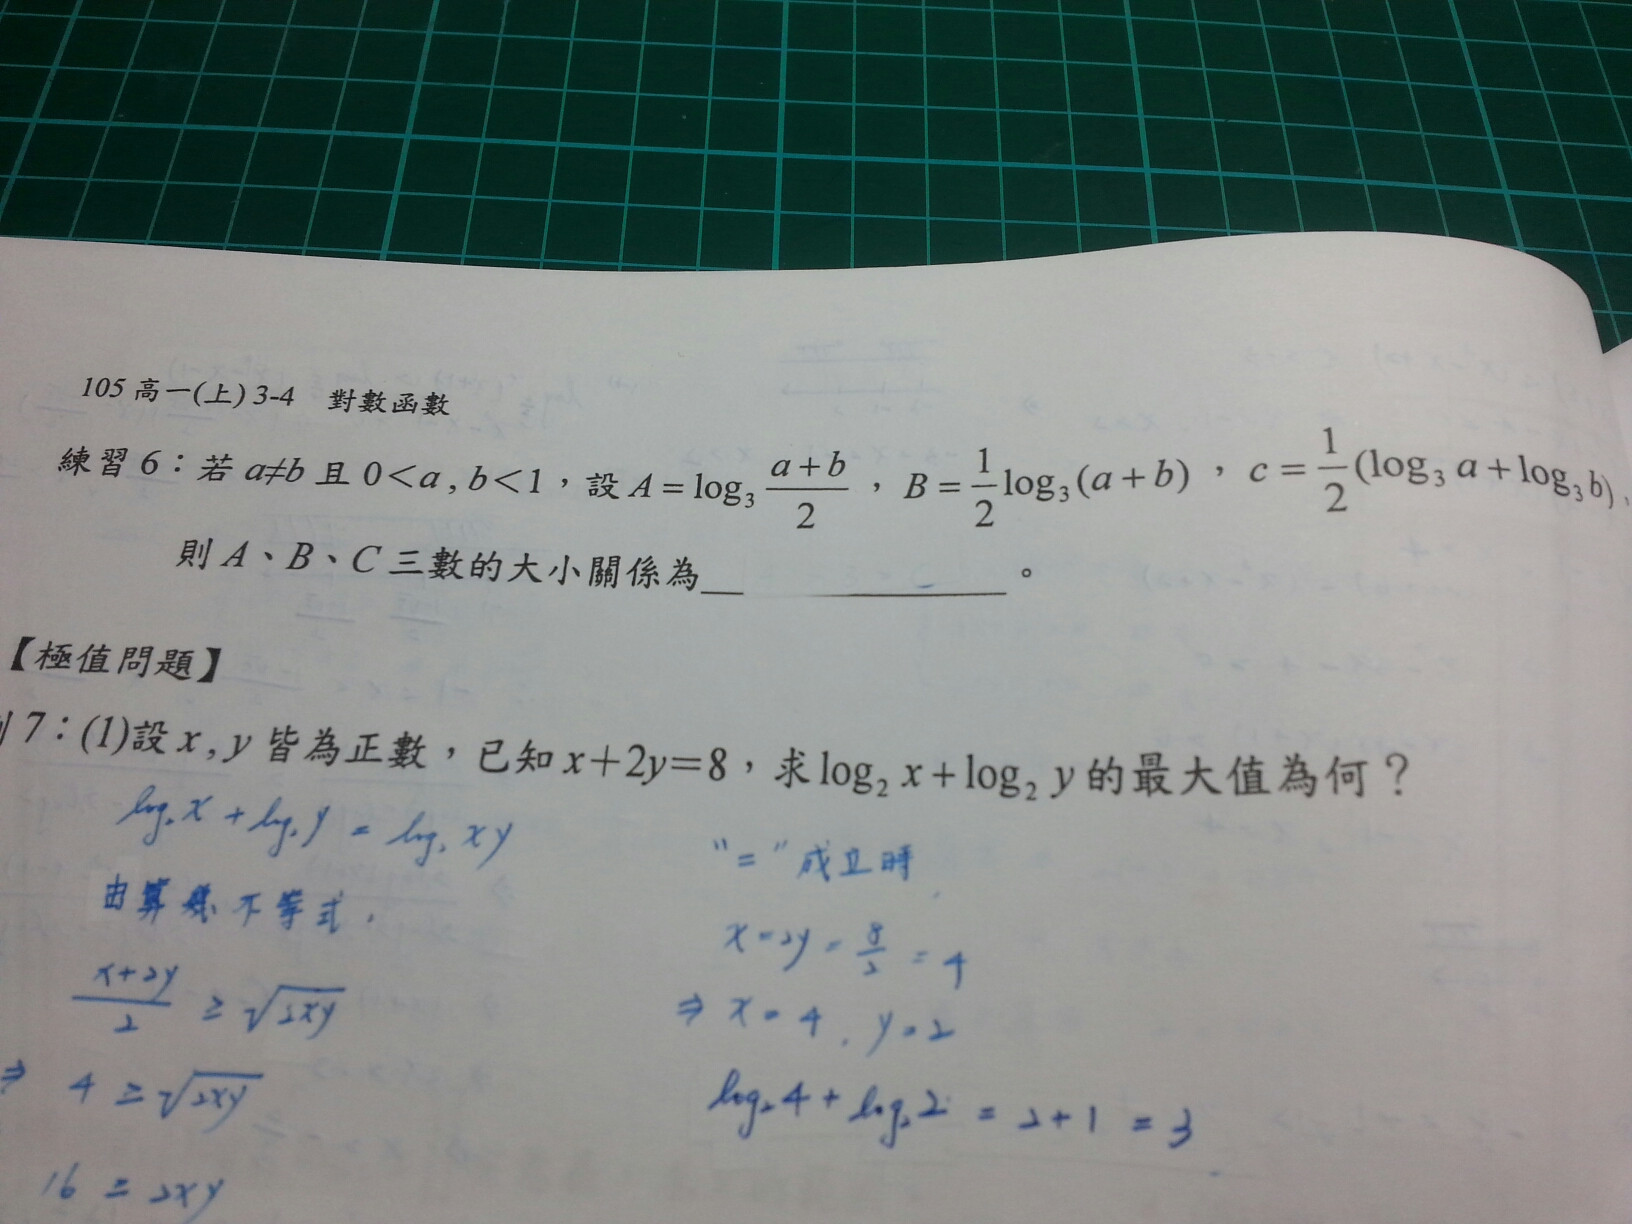 105 高一(上) 3-4 對數函數
練習 6：若 a≠b 且 0<a , b<1，設 A = log₃ (a+b)/2，B = 1/2 log₃(a+b)，c = 1/2 (log₃ a + log₃ b)，
則 A、B、C 三數的大小關係為__ ______。
【極值問題】
7：(1)設 x , y 皆為正數，已知 x+2y=8，求 log₂ x + log₂ y 的最大值為何？
log₂x + log₂y = log₂ xy
由算幾不等式，
(x+2y)/2 ≥ √(2xy)
⇒ 4 ≥ √(2xy)
16 ≥ 2xy
"=" 成立時
x=2y = 8/2 = 4
⇒ x=4, y=2
log₂4 + log₂2 = 2+1 = 3